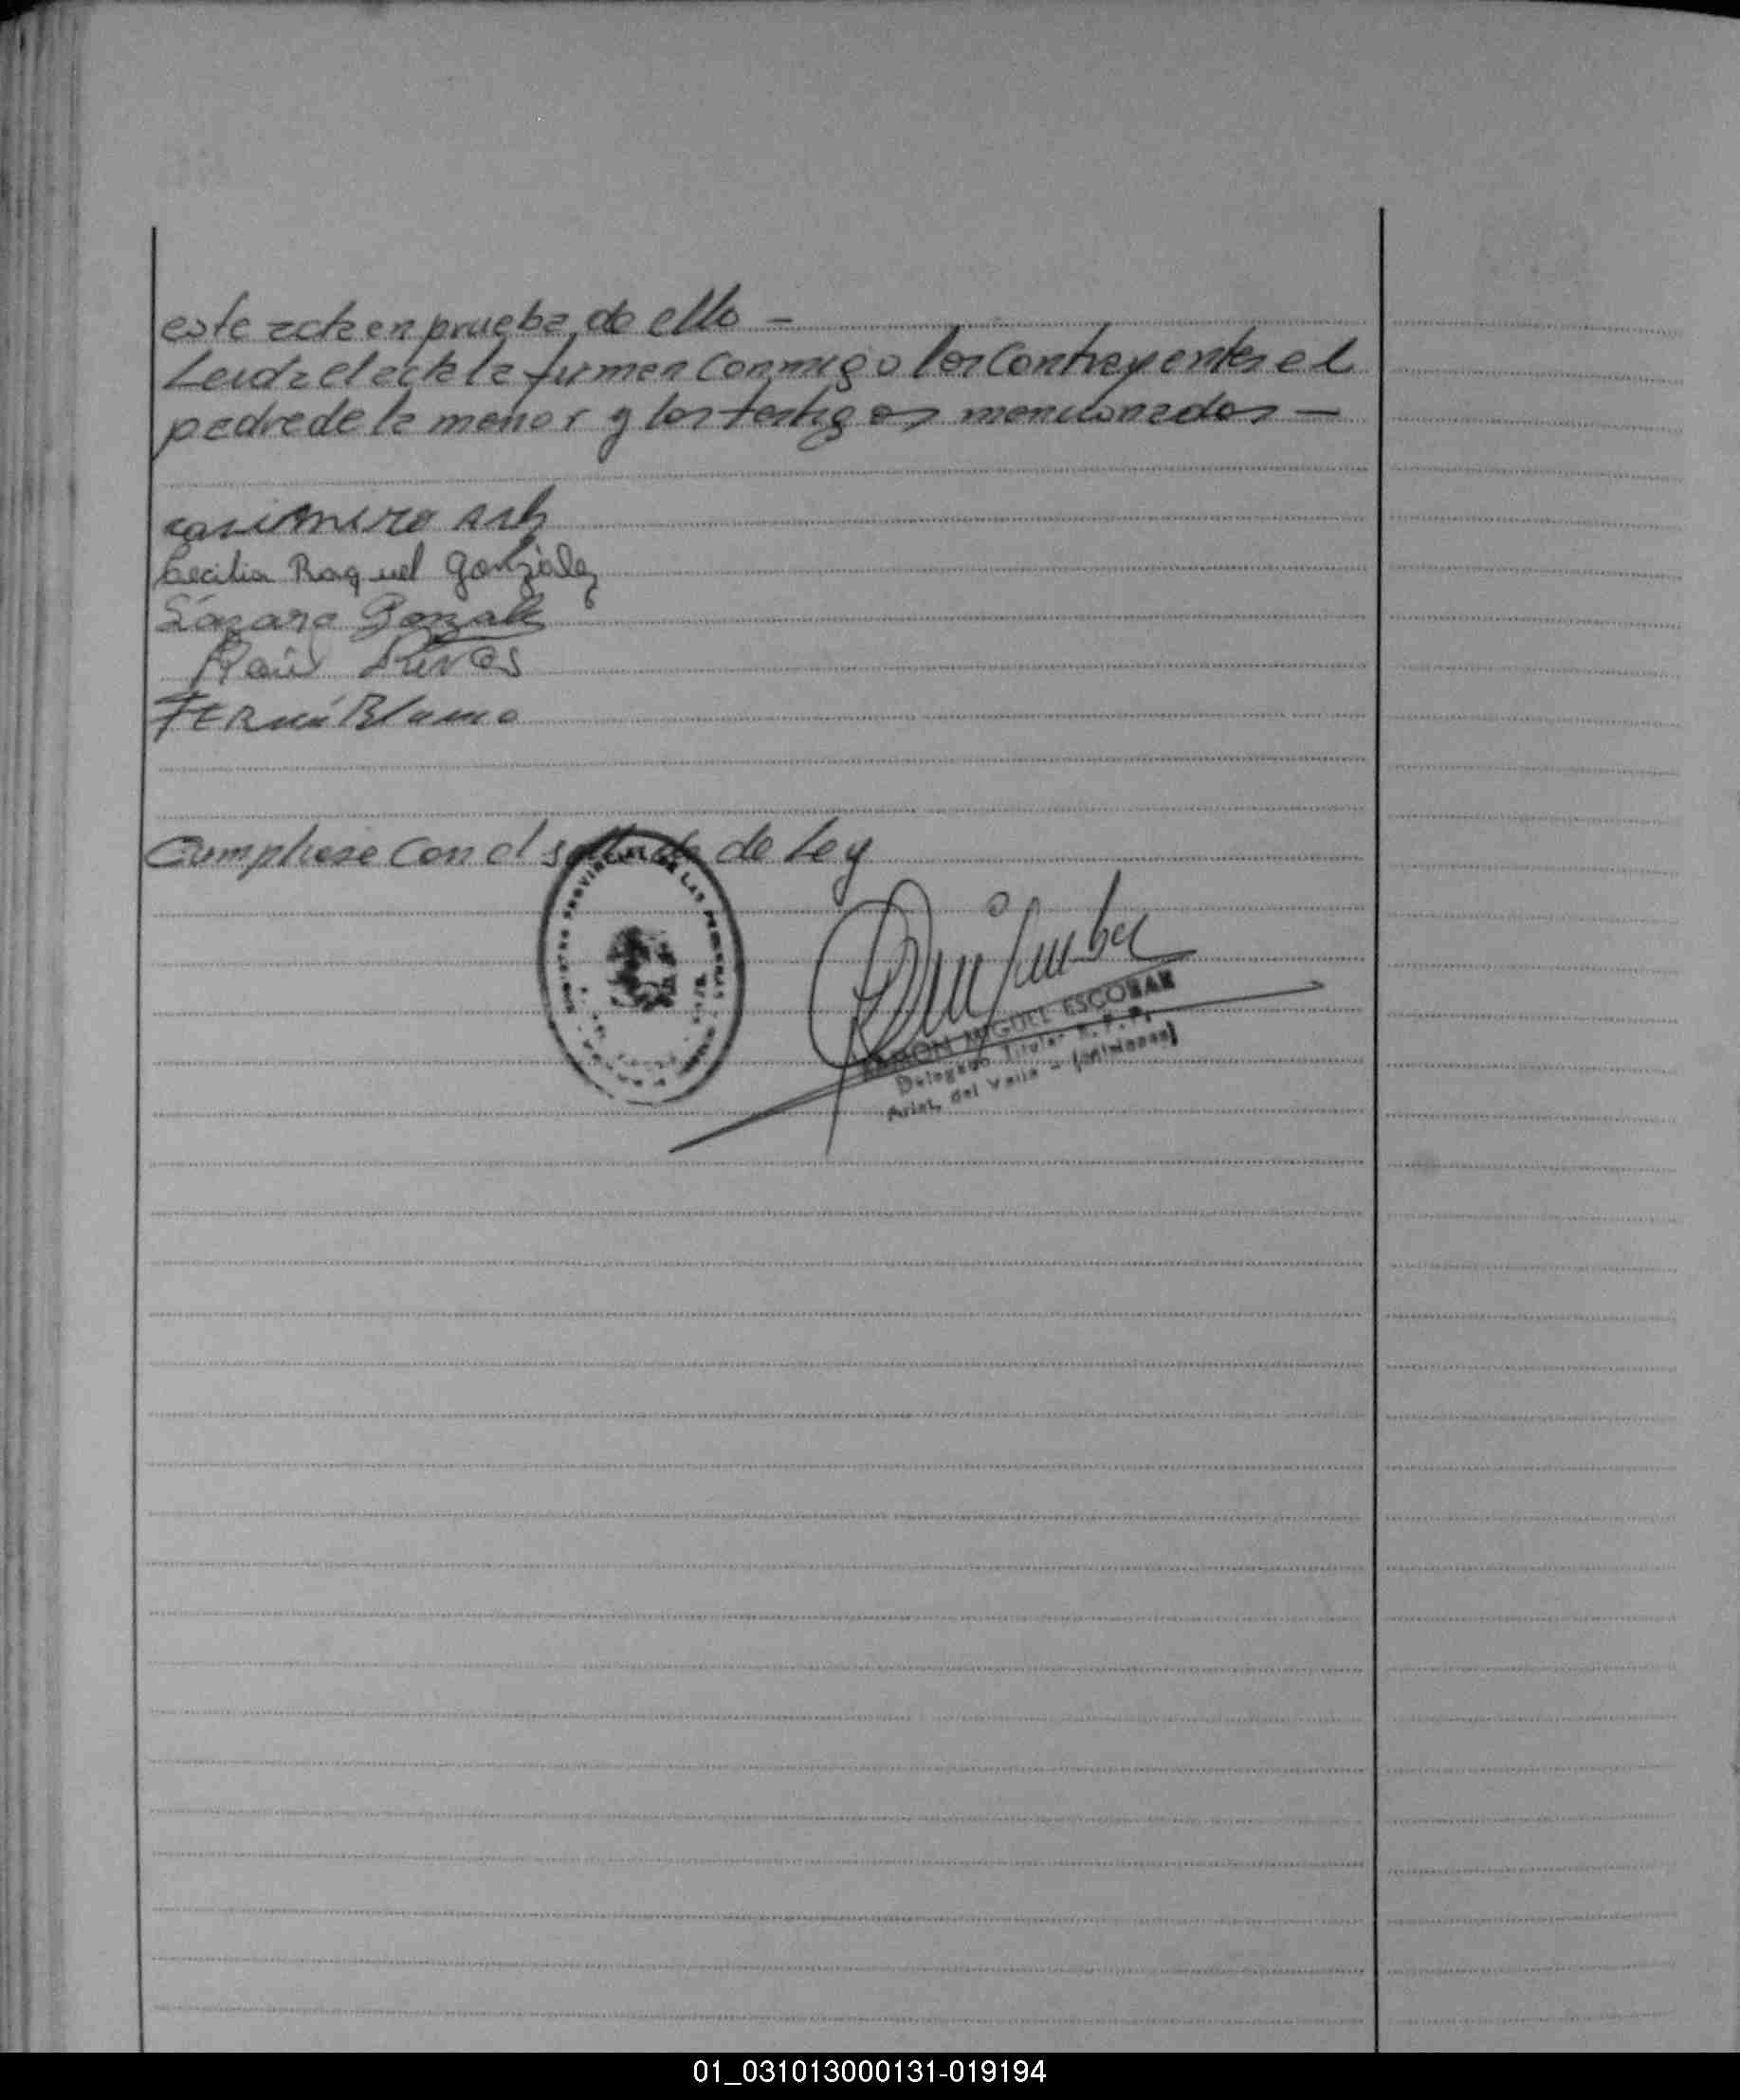 este acta en prueba de ello —
Leida el acta la firman conmigo los contrayentes el
padre de la menor y los testigos mencionados —
casimiro
Cecilia Raquel González
Lázaro Gonzalez
Raúl
Blanco
Cumpliese con el sellado de Ley
RAMON MIGUEL ESCOBAR
Delegado Titular R. P. P.
Arist. del Valle - (Misiones)
01_031013000131-019194